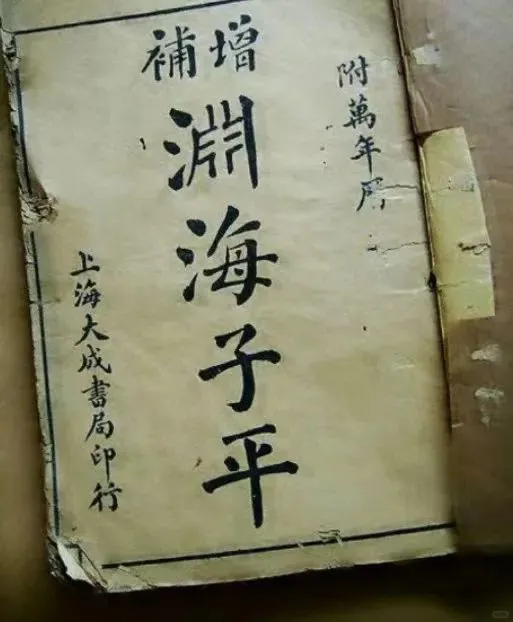 附萬年周
增補
淵海子平
上海大成書局印行